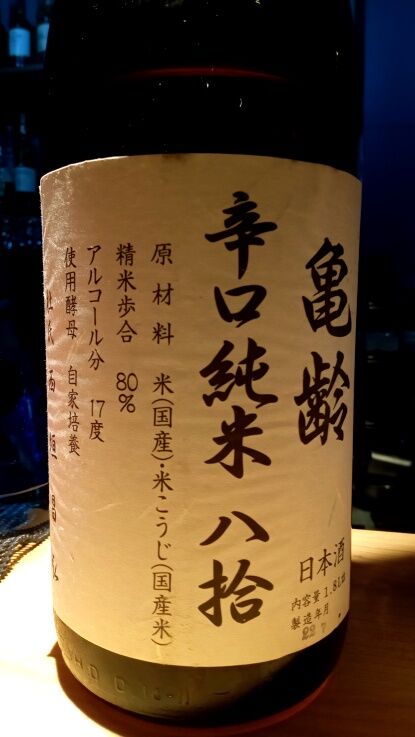 亀齢
辛口純米 八拾
日本酒
内容量 1.8L詰
製造年月
22 7
原材料 米(国産)・米こうじ(国産米)
精米歩合 80%
アルコール分 17度
使用酵母 自家培養
杜氏 西垣昌弘